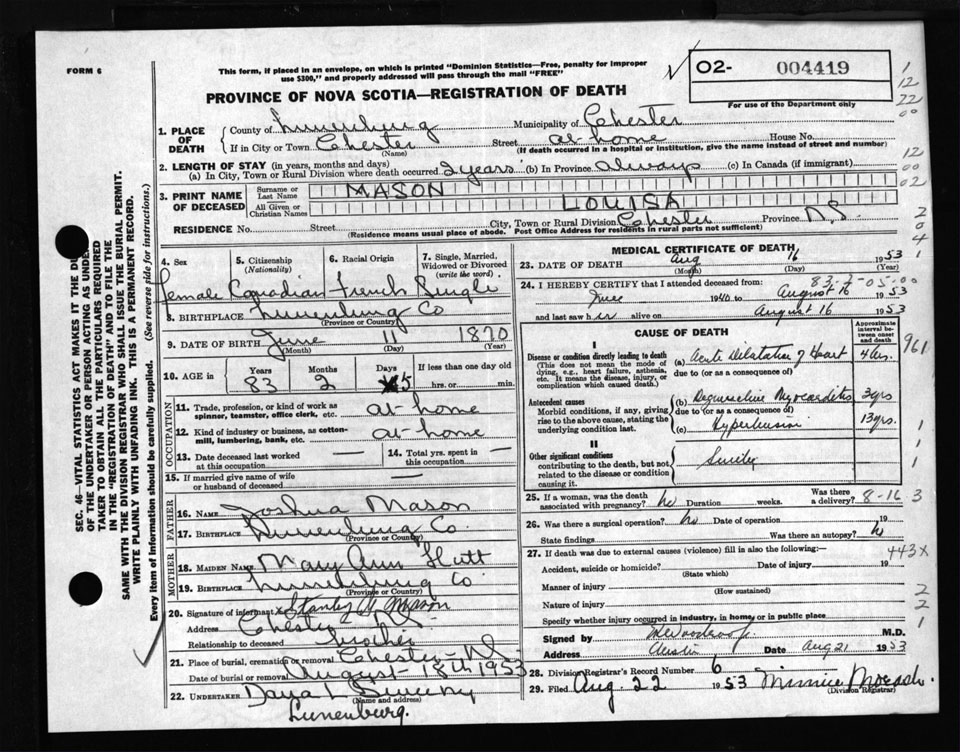 FORM 6
This form, if placed in an envelope, on which is printed "Dominion Statistics—Free, penalty for improper
use $300," and properly addressed will pass through the mail "FREE"
O2- 004419
For use of the Department only
PROVINCE OF NOVA SCOTIA—REGISTRATION OF DEATH
1. PLACE OF DEATH
County of Lunenburg Municipality of Chester
If in City or Town Chester Street at-home House No.
(Name) (If death occurred in a hospital or institution, give the name instead of street and number)
2. LENGTH OF STAY (in years, months and days)
(a) In City, Town or Rural Division where death occurred 2 years (b) In Province Always (c) In Canada (if immigrant)
3. PRINT NAME OF DECEASED
Surname or Last Name MASON
All Given or Christian Names LOUISA
RESIDENCE No. Street City, Town or Rural Division Chester Province N.S.
(Residence means usual place of abode. Post Office Address for residents in rural parts not sufficient)
SEC. 46—VITAL STATISTICS ACT MAKES IT THE DU
OF THE UNDERTAKER OR PERSON ACTING AS UNDE
TAKER TO OBTAIN ALL THE PARTICULARS REQUIRED
IN THE "REGISTRATION OF DEATH" AND TO FILE THE
SAME WITH THE DIVISION REGISTRAR WHO SHALL ISSUE THE BURIAL PERMIT.
WRITE PLAINLY WITH UNFADING INK. THIS IS A PERMANENT RECORD.
Every item of information should be carefully supplied. (See reverse side for instructions.)
4. Sex
female
5. Citizenship (Nationality)
Canadian
6. Racial Origin
French
7. Single, Married, Widowed or Divorced (write the word)
Single
8. BIRTHPLACE Lunenburg Co
(Province or Country)
9. DATE OF BIRTH June 11 1870
(Month) (Day) (Year)
10. AGE in Years Months Days If less than one day old
83 2 5 hrs. or min.
OCCUPATION
11. Trade, profession, or kind of work as spinner, teamster, office clerk, etc. at-home
12. Kind of industry or business, as cotton-mill, lumbering, bank, etc. at-home
13. Date deceased last worked at this occupation —
14. Total yrs. spent in this occupation —
15. If married give name of wife or husband of deceased —
FATHER
16. NAME Joshua Mason
17. BIRTHPLACE Lunenburg Co
(Province or Country)
MOTHER
18. MAIDEN NAME Mary Ann Hutt
19. BIRTHPLACE Lunenburg Co.
(Province or Country)
20. Signature of informant Stanley A. Mason
Address Chester N.S.
Relationship to deceased brother
21. Place of burial, cremation or removal Chester-NS
Date of burial or removal August 18th 1953
22. UNDERTAKER Sweeny
(Name and address)
Lunenburg.
MEDICAL CERTIFICATE OF DEATH
23. DATE OF DEATH Aug 16 1953
(Month) (Day) (Year)
83-2-05-00
24. I HEREBY CERTIFY that I attended deceased from:
June 1940 to August 16 1953
and last saw her alive on August 16 1953
CAUSE OF DEATH
Approximate interval between onset and death
I
Disease or condition directly leading to death
(This does not mean the mode of dying, e.g., heart failure, asthenia, etc. It means the disease, injury, or complication which caused death.)
(a) Acute Dilatation of Heart 4 hrs.
due to (or as a consequence of)
Antecedent causes
Morbid conditions, if any, giving rise to the above cause, stating the underlying condition last.
(b) Degenerative Myocarditis 3 yrs
due to (or as a consequence of)
(c) Hypertension 13 yrs.
II
Other significant conditions
contributing to the death, but not related to the disease or condition causing it.
25. If a woman, was the death associated with pregnancy? no Duration weeks. Was there a delivery? 8-16 3
26. Was there a surgical operation? no Date of operation 19
State findings Was there an autopsy?
27. If death was due to external causes (violence) fill in also the following: 443X
Accident, suicide or homicide? Date of injury 19
(State which)
Manner of injury
(How sustained)
Nature of injury
Specify whether injury occurred in industry, in home, or in public place
Signed by M.D.
Address Date Aug 21 1953
28. Division Registrar's Record Number 6
29. Filed Aug. 22 1953 Minnie
(Division Registrar)
1
12
22
00
12
00
02
2
0
4
1
961
1
1
1
2
2
1